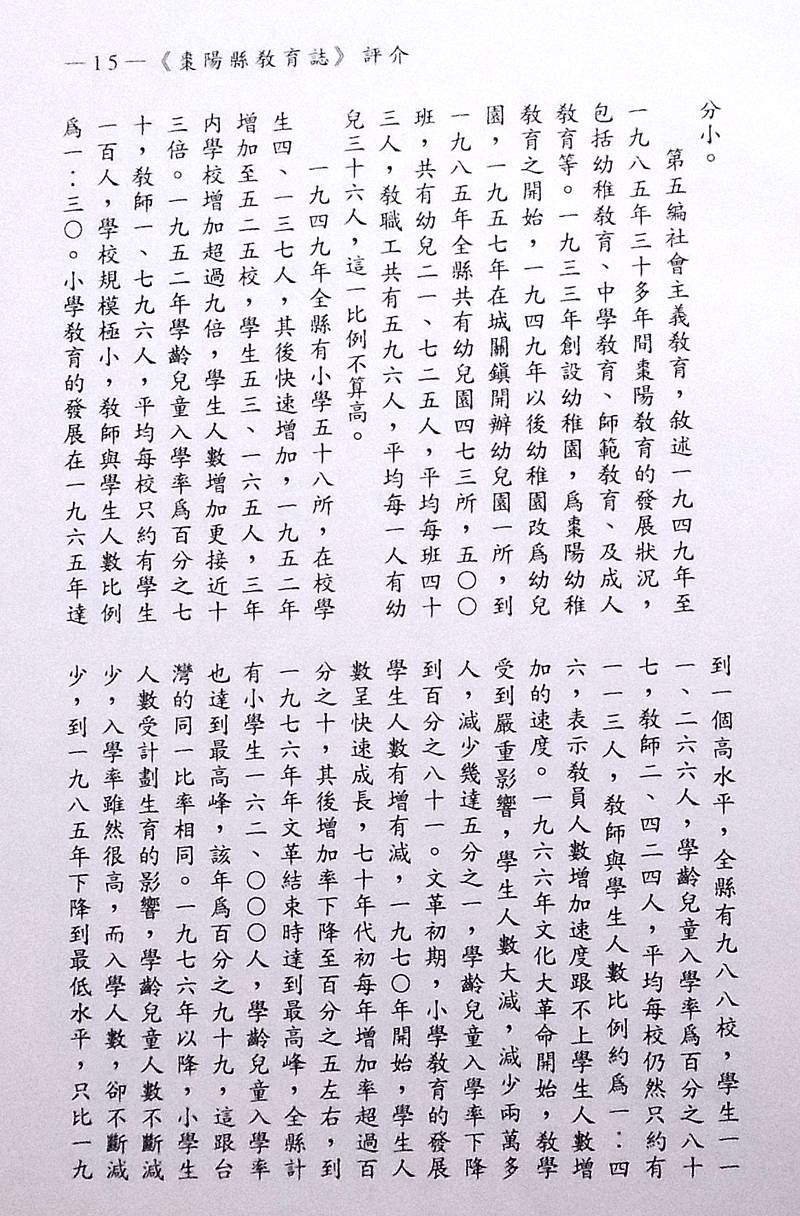 —15—《棗陽縣教育誌》評介
分小。
第五編社會主義教育，敘述一九四九年至
一九八五年三十多年間棗陽教育的發展狀況，
包括幼稚教育、中學教育、師範教育、及成人
教育等。一九三三年創設幼稚園，爲棗陽幼稚
教育之開始，一九四九年以後幼稚園改爲幼兒
園，一九五七年在城關鎮開辦幼兒園一所，到
一九八五年全縣共有幼兒園四七三所，五〇〇
班，共有幼兒二一、七二五人，平均每班四十
三人，教職工共有五九六人，平均每一人有幼
兒三十六人，這一比例不算高。
一九四九年全縣有小學五十八所，在校學
生四、一三七人，其後快速增加，一九五二年
增加至五二五校，學生五三、一六五人，三年
內學校增加超過九倍，學生人數增加更接近十
三倍。一九五二年學齡兒童入學率爲百分之七
十，教師一、七九六人，平均每校只約有學生
一百人，學校規模極小，教師與學生人數比例
爲一：三〇。小學教育的發展在一九六五年達
到一個高水平，全縣有九八八校，學生一一
一、二六六人，學齡兒童入學率爲百分之八十
七，教師二、四二四人，平均每校仍然只約有
一一三人，教師與學生人數比例約爲一：四
六，表示教員人數增加速度跟不上學生人數增
加的速度。一九六六年文化大革命開始，教學
受到嚴重影響，學生人數大減，減少兩萬多
人，減少幾達五分之一，學齡兒童入學率下降
到百分之八十一。文革初期，小學教育的發展
學生人數有增有減，一九七〇年開始，學生人
數呈快速成長，七十年代初每年增加率超過百
分之十，其後增加率下降至百分之五左右，到
一九七六年年文革結束時達到最高峰，全縣計
有小學生一六二、〇〇〇人，學齡兒童入學率
也達到最高峰，該年爲百分之九十九，這跟台
灣的同一比率相同。一九七六年以降，小學生
人數受計劃生育的影響，學齡兒童人數不斷減
少，入學率雖然很高，而入學人數，卻不斷減
少，到一九八五年下降到最低水平，只比一九